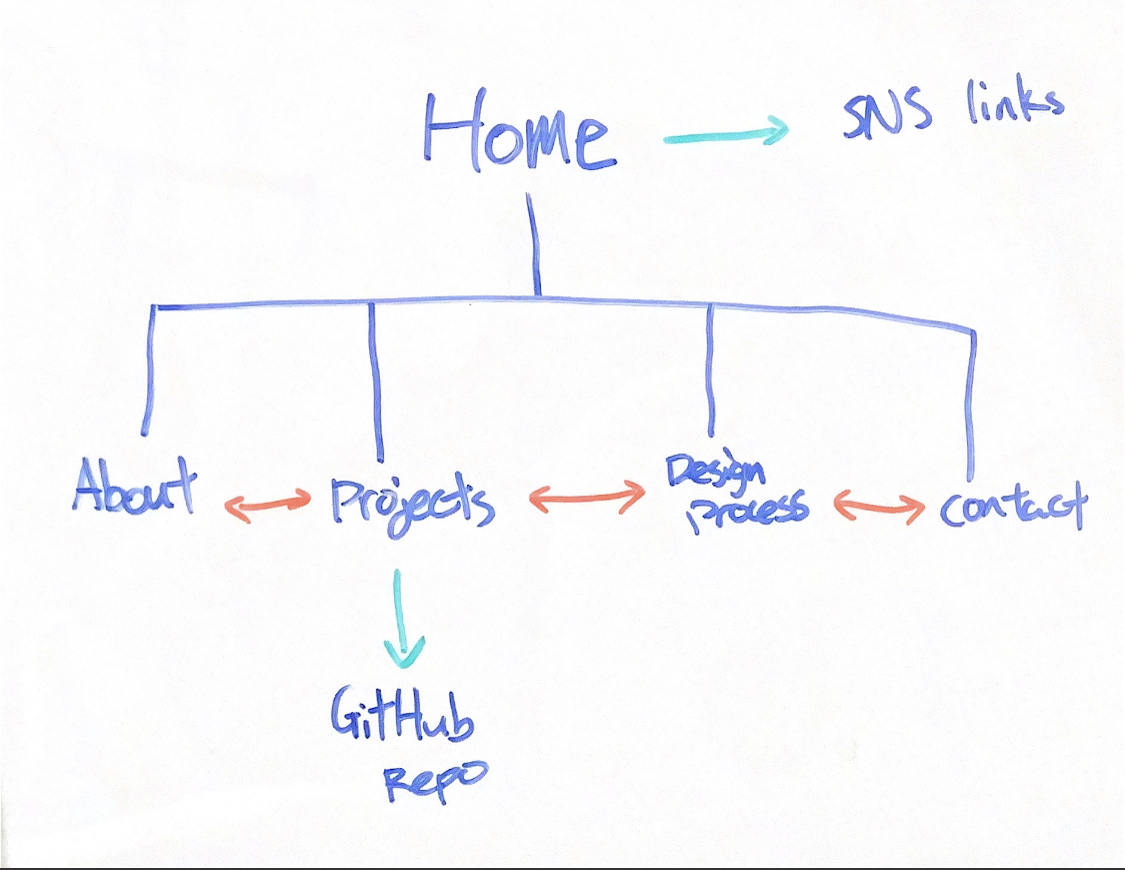 Home
SNS links
About
Projects
Design
process
contact
GitHub
Repo